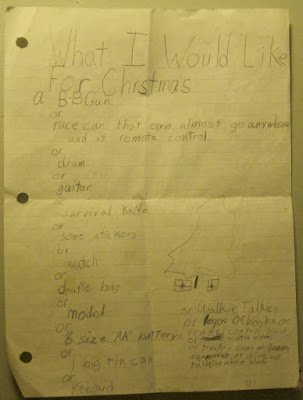 What I Would Like
for Chrstmas
a B-B Gun
or
race car that can almost go anywhere
and is remote control
or
drum
or
guitar
or
survival knife
or
some stickers
or
watch
or
doufle bag
or
model
or
8 size "AA" batterys
or
1 big tin can
or
or Walkie Talkies
or legos or books or
remote control boat
or